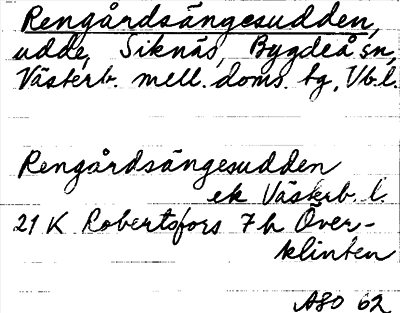 Rengårdsängesudden,
udde, Siknäs, Bygdeå sn,
Västerb. mell. doms. tg, Vb.l.
Rengårdsängesudden
ek Västerb. l.
21 K Robertsfors 7h Över-
klinten
ASO 62